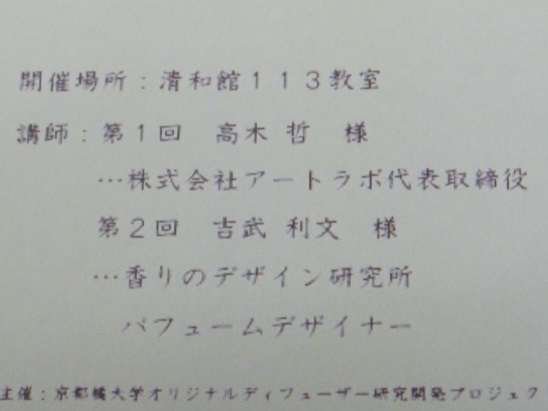 開催場所：清和館１１３教室
講師：第１回　高木 哲　様
…株式会社アートラボ代表取締役
第２回　吉武 利文　様
…香りのデザイン研究所
パフュームデザイナー
主催：京都橘大学オリジナルディフューザー研究開発プロジェク